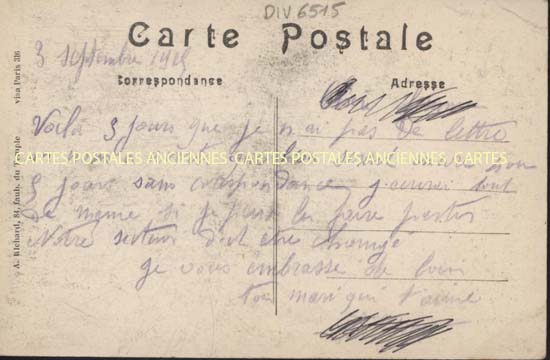 DIV6515
Carte Postale
3 septembre
Correspondance
Adresse
Voilà 3 jours que je n'ai pas de lettre
CARTES POSTALES ANCIENNES CARTES POSTALES ANCIENNES CARTES POSTALES
5 jours sans correspondance j'écrirai tout
de même si je peux les faire partir
Notre secteur doit être changé
je vous embrasse de loin
ton mari qui t'aime
A. Richard, 84, faub. du Temple visa Paris 316